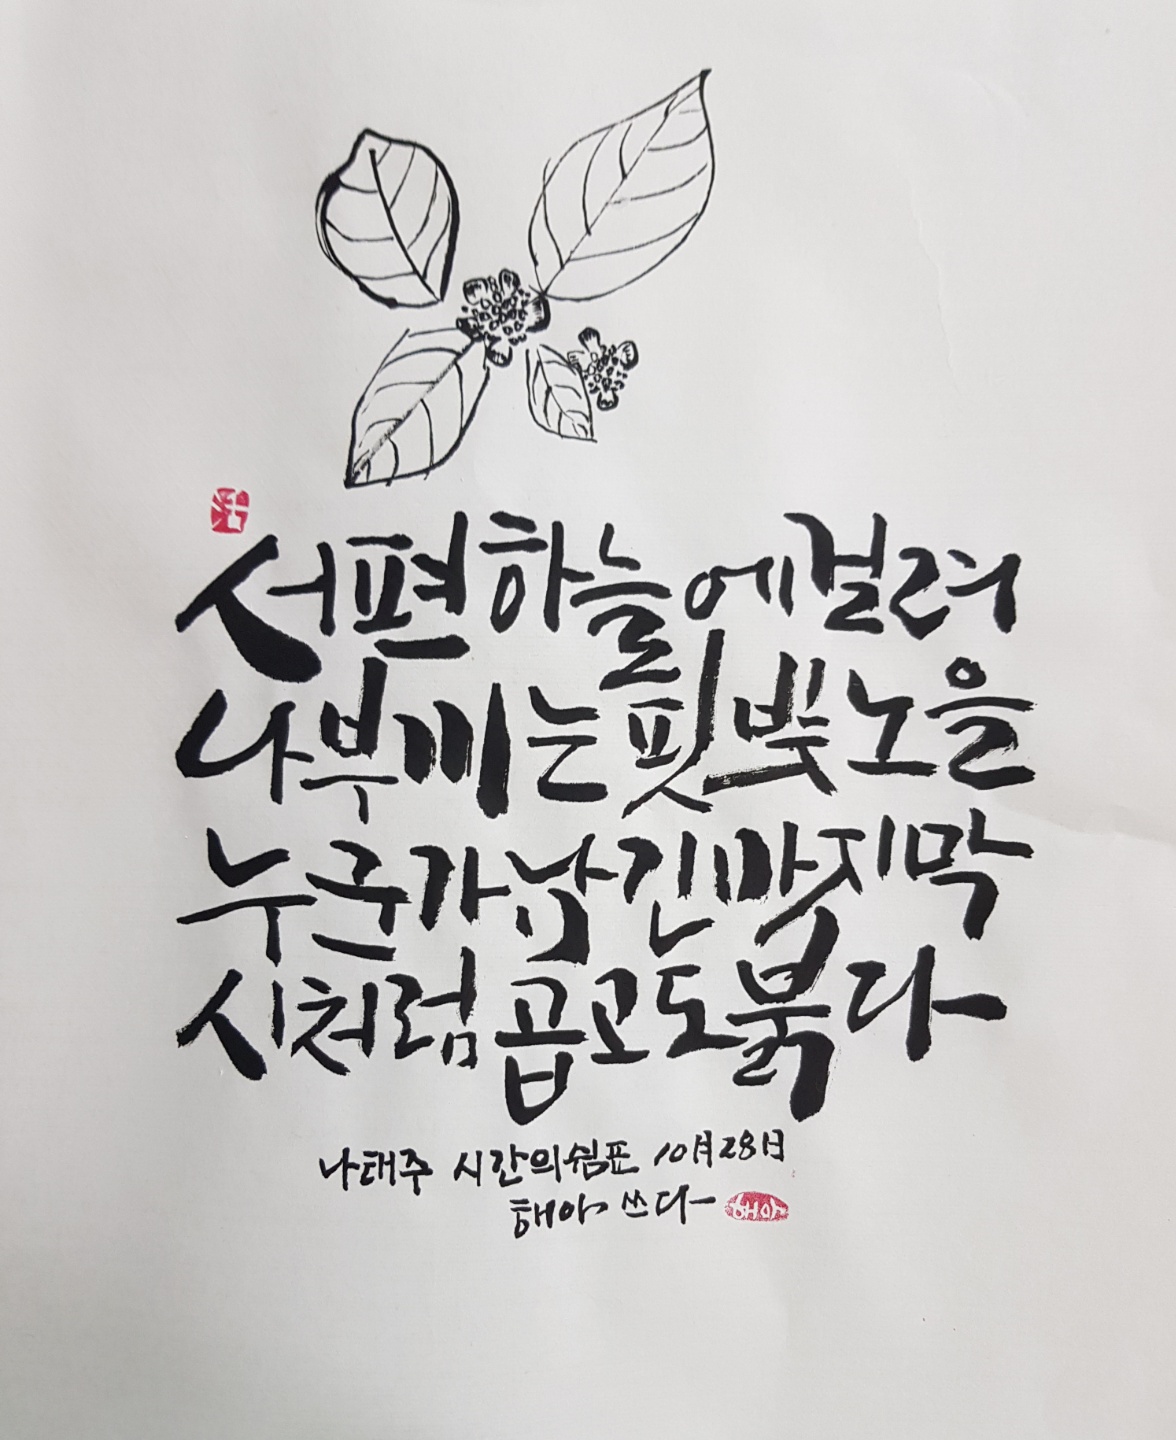 서편 하늘에 걸려
나부끼는 핏빛 노을
누군가 남긴 마지막
시처럼 곱고도 붉다
나태주 시간의쉼표 10月28日
해아 쓰다
해아